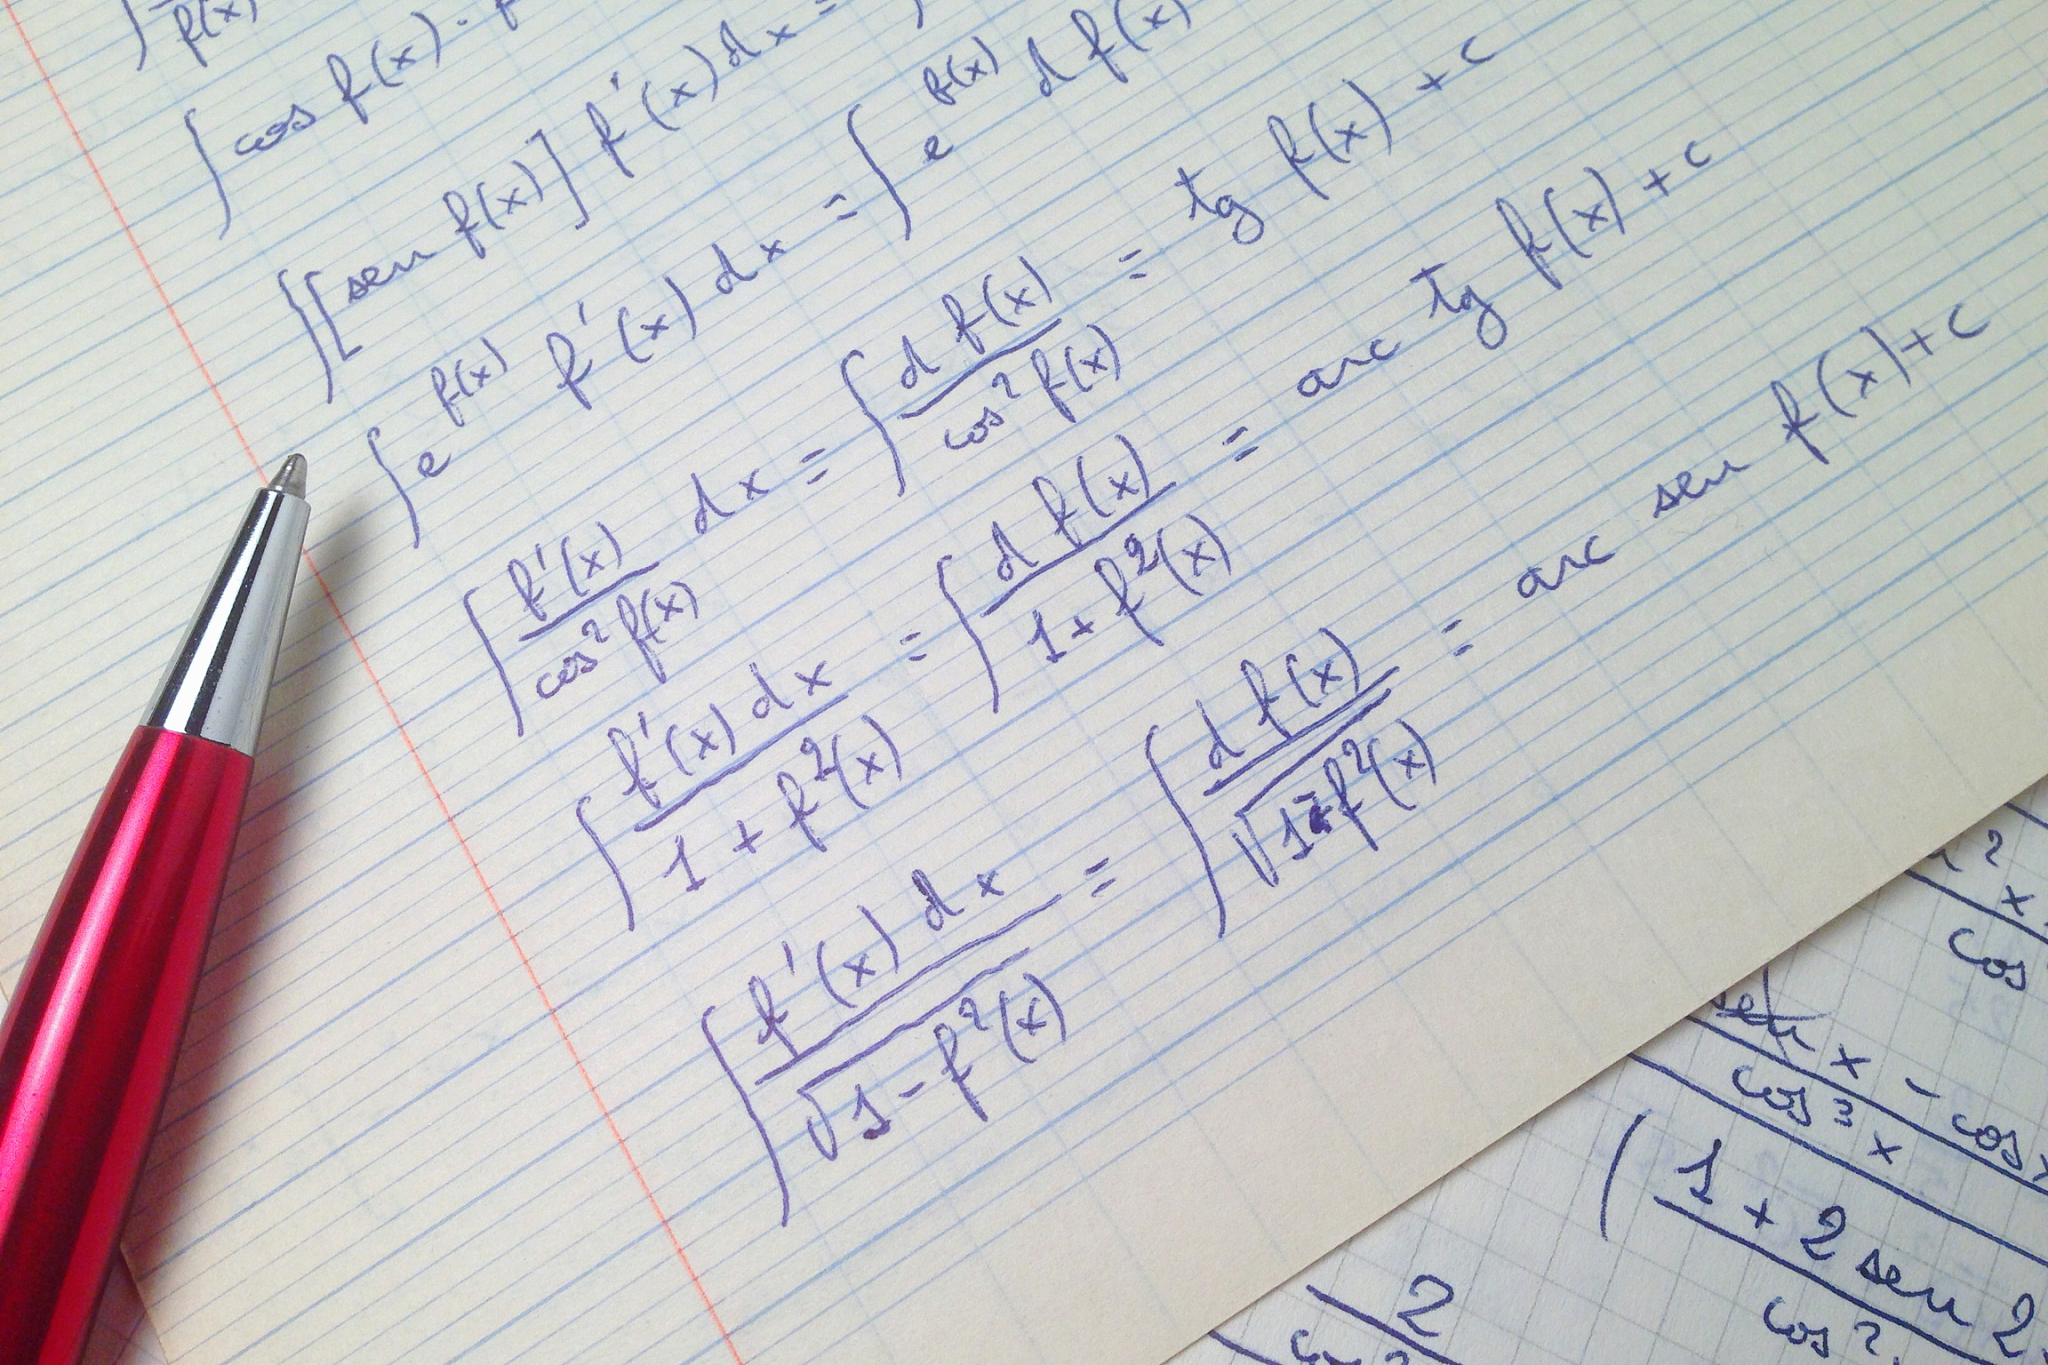 f(x)
∫ cos f(x) ·
∫ [sen f(x)] f'(x) dx =
∫ e^f(x) f'(x) dx = ∫ e^f(x) d f(x)
∫ f'(x)/cos² f(x) dx = ∫ d f(x)/cos² f(x) = tg f(x) + c
∫ f'(x) dx/1 + f²(x) = ∫ d f(x)/1 + f²(x) = arc tg f(x) + c
∫ f'(x) dx/√1 - f²(x) = ∫ d f(x)/√1 - f²(x) = arc sen f(x) + c
² x
cos
sen x - cos x
cos³ x
(1 + 2 sen 2
cos²
2